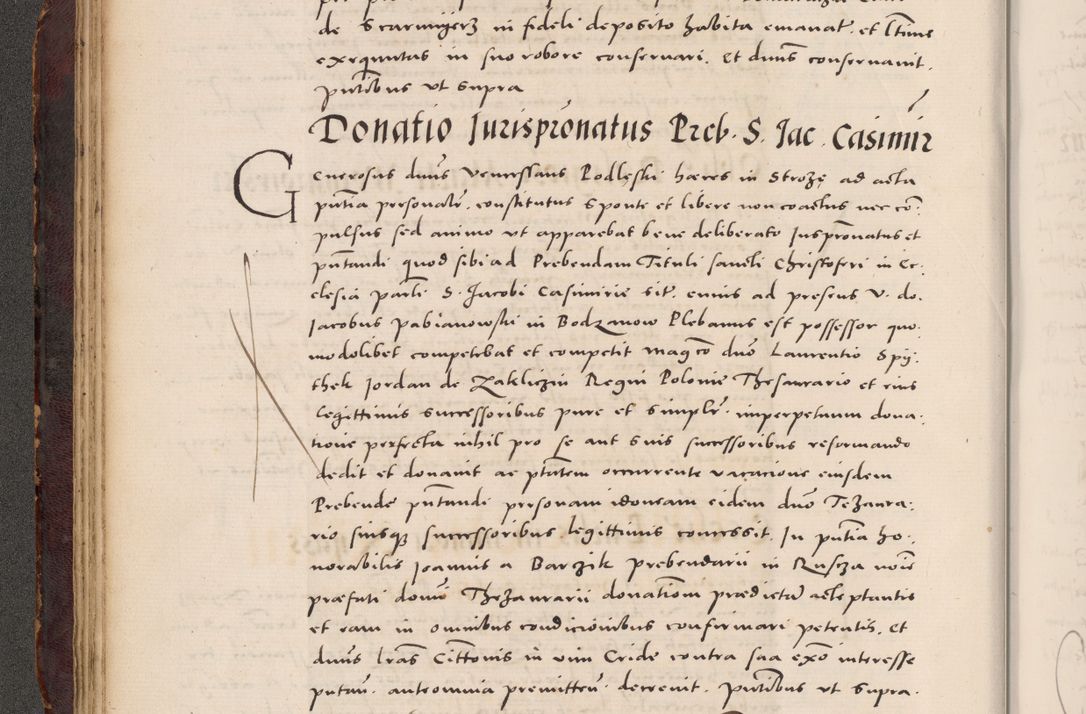 de Scarmijerz in fideli deposito habita emanat. et l̃rmus
exequutas in suo robore conservari. Et dũns conservavit.
pn̄tibus ut supra
Donatio Jurisprōnatus Preb. S. Jac. Casimir
Generosus dn̄us Vencesslaus Podleski hæres in Strozę ad acta
pn̄tia personalr̄. constitutus sponte et libere non coactus nec cō:
pulsus sed animo ut apparebat bene deliberato Jusprōnatus et
pn̄tandi quod sibi ad Prebendam Tituli sancti Christoferi in Ec:
clesia paroli S. Jacobi Casimirie sit̃. cuius ad presens V. do.
Jacobus Pabianowski in Bodzanow Plebanus est possessor quo:
modolibet competebat et competit magco dn̄o Laurentio Spij:
thek Jordan de Zakliczin Regni Polonie Thesaurario et eius
legittimis successoribus pure et simplr̄. imperpetuum dona:
tione perfecta nihil pro se aut suis successoribus reformando
dedit et donavit ac ptātem occurrente vacacione eiusdem
Prebende pn̄tandi personam idoneam eidem dn̄o Tezaura:
rio suisq successoribus legittimis concessit. In pn̄tia ho:
norabilis Joannis a Barczik prebendarii in Ruscza noīe
præfati domī Thezaurarii donationē prædictā acceptantis
et eam in omnibus condicionibus confirmari petentis. Et
dn̄us lr̄as Cittōnis in vim Cride contra sua exō interesse
putan̄. ante omnia premitten̄. decrevit. pn̄tibus ut supra.